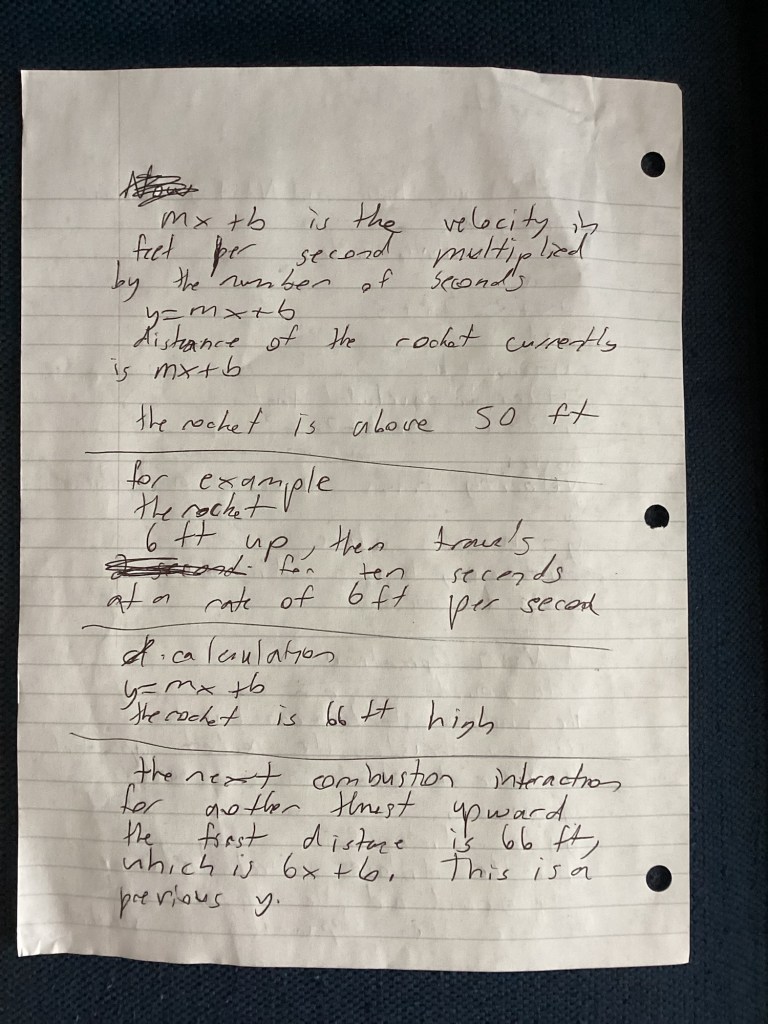 mx + b is the velocity in
feet per second multiplied
by the number of seconds
y = mx + b
distance of the rocket currently
is mx + b
the rocket is above 50 ft
for example
the rocket
6 ft up, then travels
for ten seconds
at a rate of 6 ft per second
calculation
y = mx + b
the rocket is 66 ft high
the next combustion interaction
for another thrust upward
the first distance is 66 ft,
which is 6x + 6. This is a
previous y.